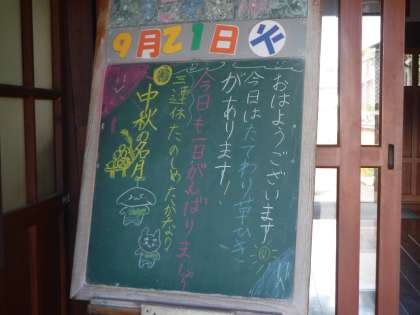 9月21日 火
おはようございます
今日はたてわり草ひき
があります!
今日も一日がんばりましょう
三連休たのしめたかな?
中秋の名月